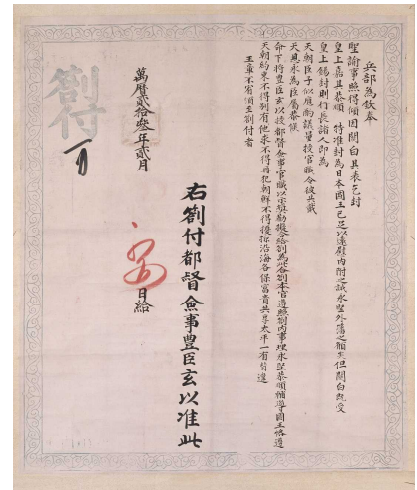 兵部為欽奉
聖諭事照得頃因關白具表乞封
皇上嘉其恭順特准封為日本國王已足以遠慰內附之誠永堅外藩之願矣但關白既受
皇上錫封則行長諸人即為
天朝臣子似應酌議量授官職令彼共戴
天恩永為臣屬恭候
命下將豊臣玄以授都督僉事官職以示擬合給劄為此合劄本官遵照劄內事理永堅恭順輔導國王恪遵
天朝約束不得別有他求不得再犯朝鮮不得擾掠沿海各保富貴共享太平一有背違
王章不宥須至劄付者
右劄付都督僉事豊臣玄以准此
萬曆貳拾叁年貳月 日給
劄付